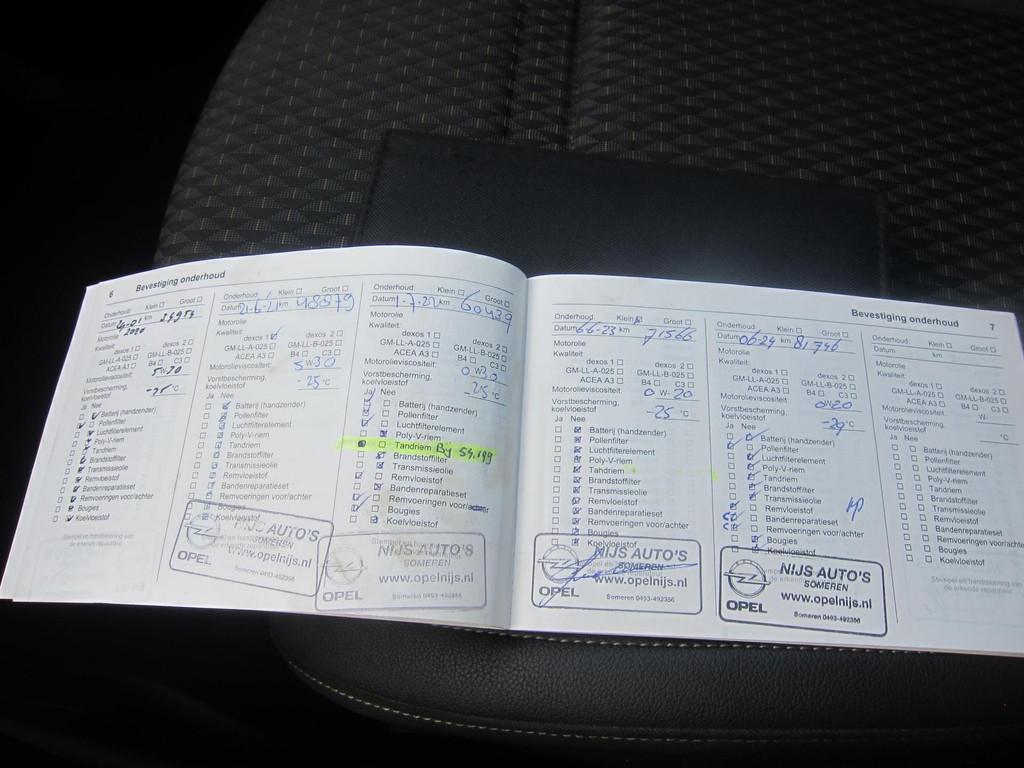 6 Bevestiging onderhoud
Datum 2020 km 26954
Motorolie
Kwaliteit:
dexos 1 dexos 2
GM-LL-A-025 GM-LL-B-025
ACEA A3 B4 C3
Motorolieviscositeit: 5W30
Vorstbescherming,
koelvloeistof °C
Ja Nee
Batterij (handzender)
Pollenfilter
Luchtfilterelement
Poly-V-riem
Tandriem
Brandstoffilter
Transmissieolie
Remvloeistof
Bandenreparatieset
Remvoeringen voor/achter
Bougies
Koelvloeistof
Onderhoud: Klein Groot
Datum 21-6-21 km 48879
Motorolie
Kwaliteit:
dexos 1 dexos 2
GM-LL-A-025 GM-LL-B-025
ACEA A3 B4 C3
Motorolieviscositeit: 5W30
Vorstbescherming,
koelvloeistof -25 °C
Ja Nee
Batterij (handzender)
Pollenfilter
Luchtfilterelement
Poly-V-riem
Tandriem
Brandstoffilter
Transmissieolie
Remvloeistof
Bandenreparatieset
Remvoeringen voor/achter
Bougies
Koelvloeistof
NIJS AUTO'S
SOMEREN
www.opelnijs.nl
OPEL Someren 0493-492356
Onderhoud: Klein Groot
Datum 1-7-22 km 60439
Motorolie
Kwaliteit:
dexos 1 dexos 2
GM-LL-A-025 GM-LL-B-025
ACEA A3 B4 C3
Motorolieviscositeit: 0W30
Vorstbescherming,
koelvloeistof -25 °C
Ja Nee
Batterij (handzender)
Pollenfilter
Luchtfilterelement
Poly-V-riem
Tandriem Bij 54.199
Brandstoffilter
Transmissieolie
Remvloeistof
Bandenreparatieset
Remvoeringen voor/achter
Bougies
Koelvloeistof
NIJS AUTO'S
SOMEREN
www.opelnijs.nl
OPEL Someren 0493-492356
Bevestiging onderhoud 7
Onderhoud: Klein Groot
Datum 6-6-23 km 71566
Motorolie
Kwaliteit:
dexos 1 dexos 2
GM-LL-A-025 GM-LL-B-025
ACEA A3 B4 C3
Motorolieviscositeit: 0 W-20
Vorstbescherming,
koelvloeistof -25 °C
Ja Nee
Batterij (handzender)
Pollenfilter
Luchtfilterelement
Poly-V-riem
Tandriem
Brandstoffilter
Transmissieolie
Remvloeistof
Bandenreparatieset
Remvoeringen voor/achter
Bougies
Koelvloeistof
NIJS AUTO'S
SOMEREN
www.opelnijs.nl
OPEL Someren 0493-492356
Onderhoud: Klein Groot
Datum 06-24 km 81746
Motorolie
Kwaliteit:
dexos 1 dexos 2
GM-LL-A-025 GM-LL-B-025
ACEA A3 B4 C3
Motorolieviscositeit: 0W20
Vorstbescherming,
koelvloeistof -29 °C
Ja Nee
Batterij (handzender)
Pollenfilter
Luchtfilterelement
Poly-V-riem
Tandriem
Brandstoffilter
Transmissieolie
Remvloeistof
Bandenreparatieset
Remvoeringen voor/achter
Bougies
Koelvloeistof
NIJS AUTO'S
SOMEREN
www.opelnijs.nl
OPEL Someren 0493-492356
Onderhoud: Klein Groot
Datum km
Motorolie
Kwaliteit:
dexos 1 dexos 2
GM-LL-A-025 GM-LL-B-025
ACEA A3 B4 C3
Motorolieviscositeit: W-
Vorstbescherming,
koelvloeistof °C
Ja Nee
Batterij (handzender)
Pollenfilter
Luchtfilterelement
Poly-V-riem
Tandriem
Brandstoffilter
Transmissieolie
Remvloeistof
Bandenreparatieset
Remvoeringen voor/achter
Bougies
Koelvloeistof
Stempel en handtekening van
de erkende reparateur